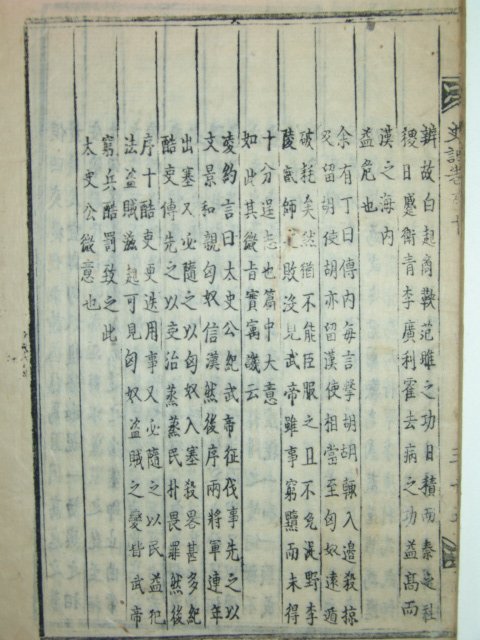 史記卷百十
三十
辨故白起商鞅范雎之功日積而秦之社
稷日蹙衛青李廣利霍去病之功益高而
漢之海内
益危也
余有丁曰傳内每言擊胡胡輒入邊殺掠
又留胡使胡亦留漢使相當至匈奴遠遁
破耗矣然猶不能臣服之且不免浞野李
陵貳師之敗沒見武帝雖事窮黷而未得
十分逞志也篇中大意
如此其微旨實寓譏云
凌約言曰太史公紀武帝征伐事先之以
文景和親匈奴信漢然後序兩將軍連年
出塞又必隨之以匈奴入塞殺畧甚多紀
酷吏傳先之以吏治蒸蒸民朴畏罪然後
序十酷吏更迭用事又必隨之以民益犯
法盗賊滋起可見匈奴盗賊之變皆武帝
窮兵酷罰致之此
太史公微意也